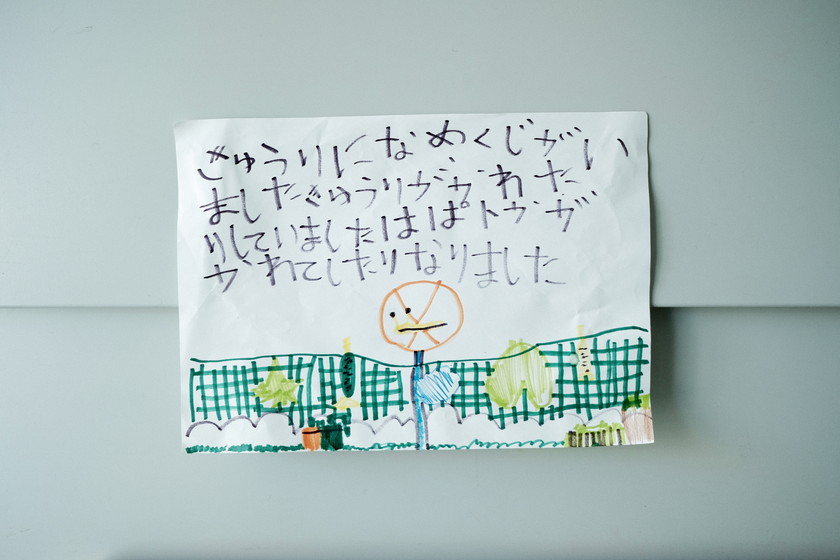 きゅうりになめくじがい
ましたきゅうりががわた
りしていましたははぱトががが
がわてしたりなりました